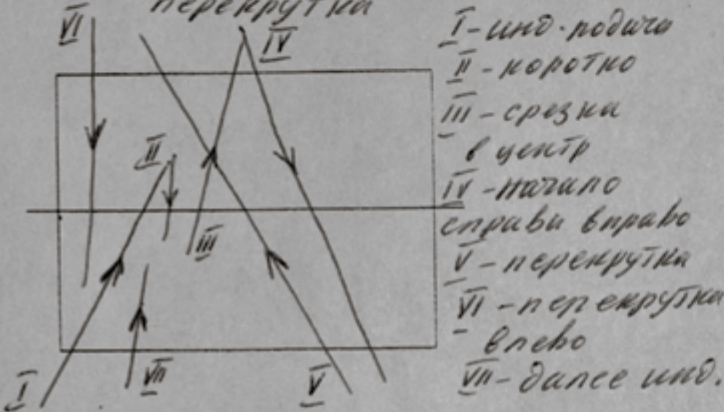 перекрутка
VI
IV
II
III
I
VII
V
I - инд. подача
II - коротко
III - срезка
в центр
IV - начало
справа вправо
V - перекрутка
VI - перекрутка
влево
VII - далее инд.